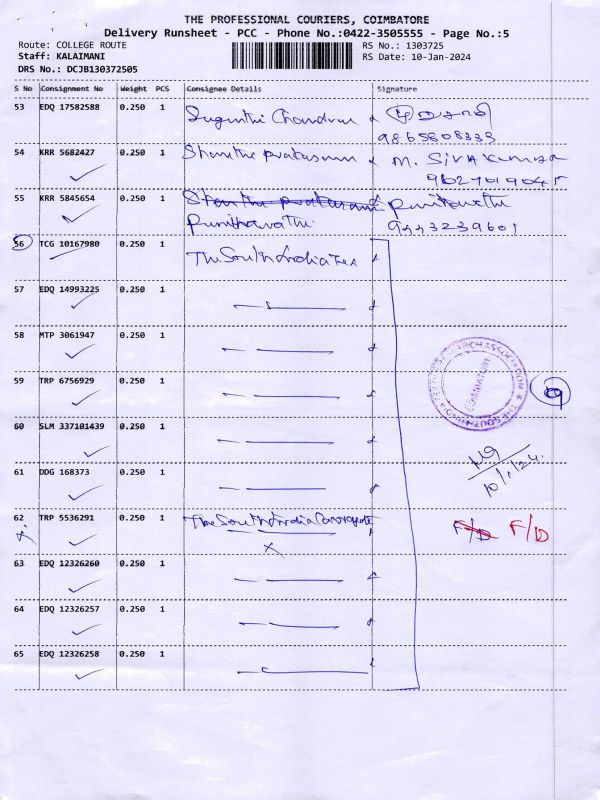 THE PROFESSIONAL COURIERS, COIMBATORE
Delivery Runsheet - PCC - Phone No.:0422-3505555 - Page No.:5
Route: COLLEGE ROUTE
RS No.: 1303725
Staff: KALAIMANI
RS Date: 10-Jan-2024
DRS No.: DCJB130372505
S No Consignment No Weight PCS Consignee Details Signature
53 EDQ 17582588 0.250 1
9865808333
54 KRR 5682427 0.250 1 M. Sivakumar
55 KRR 5845654 0.250 1 Punithavathi
Punithavathi 9443239601
56 TCG 10167980 0.250 1 The South India Tex
57 EDQ 14993225 0.250 1
58 MTP 3061947 0.250 1
59 TRP 6756929 0.250 1
THE SOUTH INDIA TEXTILES RESEARCH ASSOCIATION
COIMBATORE
9
60 SLM 337101439 0.250 1
61 DDG 168373 0.250 1
10/1/24
62 TRP 5536291 0.250 1 The South India
F/D F/D
63 EDQ 12326260 0.250 1
64 EDQ 12326257 0.250 1
65 EDQ 12326258 0.250 1